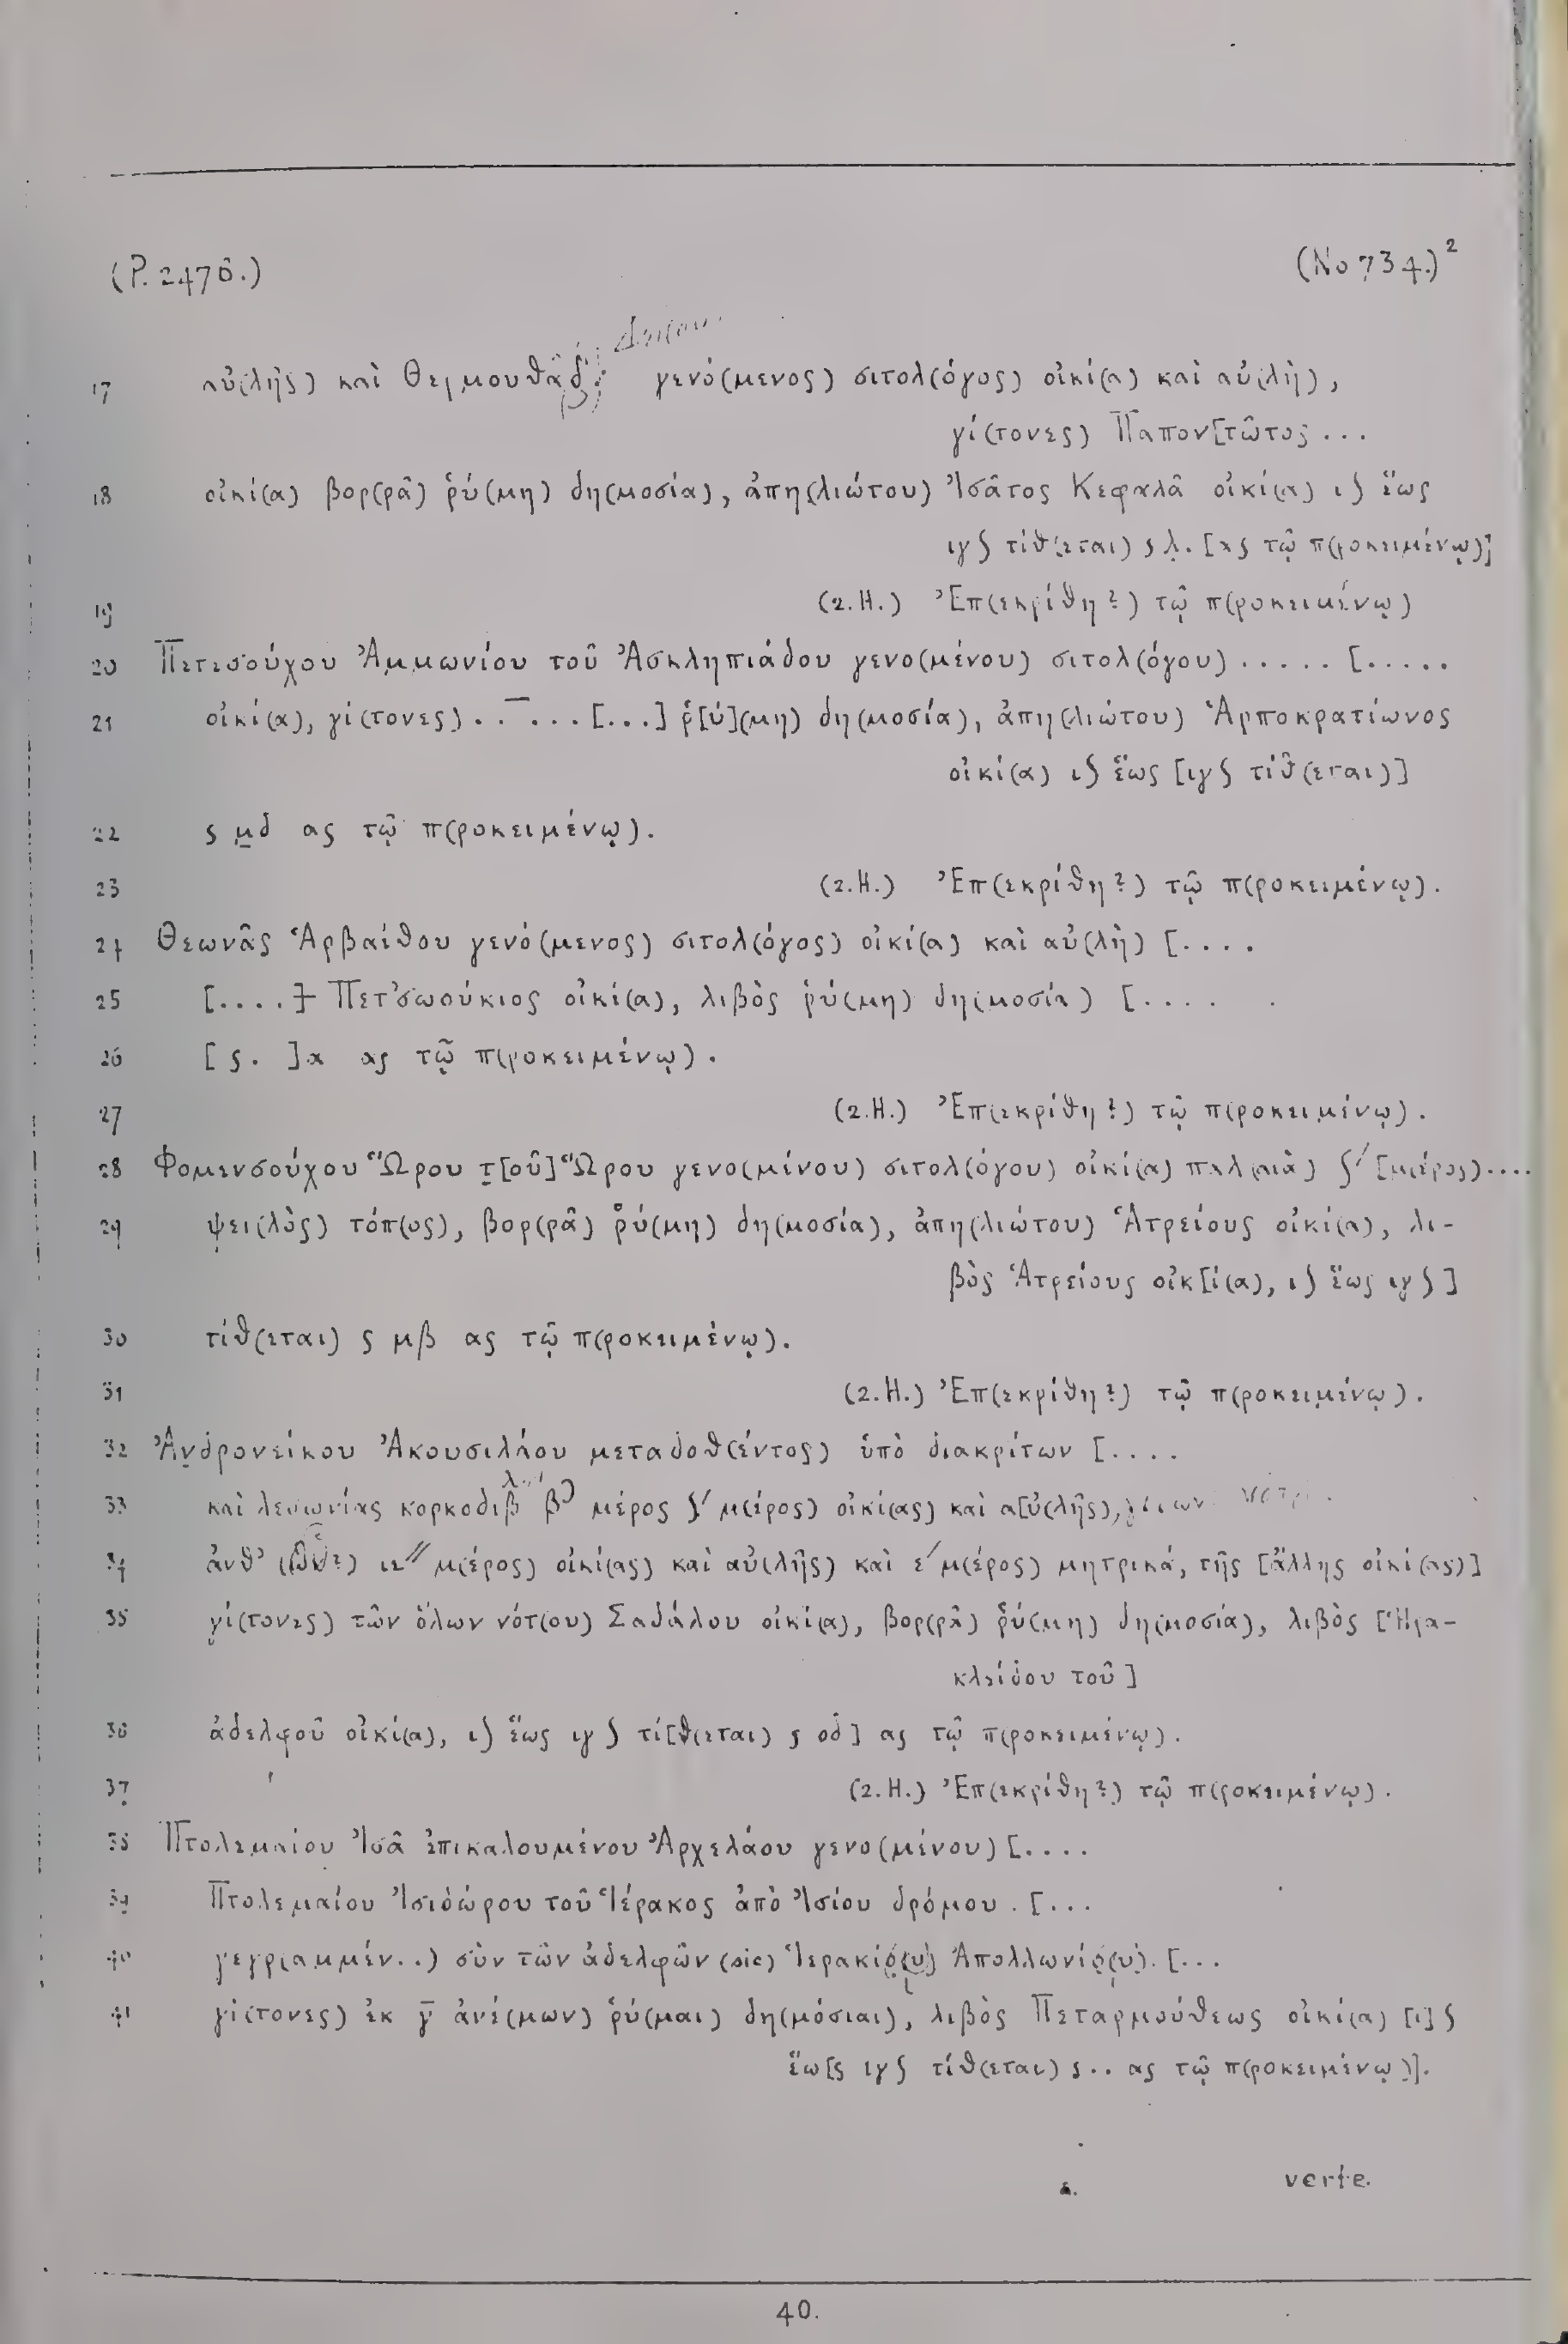 (P. 2476.) (No 734.)²
17 αὐ(λῆς) καὶ γενό(μενος) σιτολ(όγος) οἰκί(α) καὶ αὐ(λὴ),
γί(τονες) Παπον[τῶτος ...
18 οἰκί(α) βορ(ρᾶ) ῥύ(μη) δη(μοσία), ἀπη(λιώτου) Ἰσᾶτος Κεφαλᾶ οἰκί(α) ι𐅵 ἕως
ιγ𐅵 τίθ(εται) ς λ. [ας τῷ π(ροκειμένῳ)]
19 (2.H.) Ἐπ(εκρίθη?) τῷ π(ροκειμένῳ)
20 Πετεσούχου Ἀμμωνίου τοῦ Ἀσκληπιάδου γενο(μένου) σιτολ(όγου) ..... [.....
21 οἰκί(α), γί(τονες) ..‾... [...] ῥ[ύ](μη) δη(μοσία), ἀπη(λιώτου) Ἁρποκρατίωνος
οἰκί(α) ι𐅵 ἕως [ιγ𐅵 τίθ(εται)]
22 ς μ̲δ ας τῷ π(ροκειμένῳ).
23 (2.H.) Ἐπ(εκρίθη?) τῷ π(ροκειμένῳ).
24 Θεωνᾶς Ἁρβαίθου γενό(μενος) σιτολ(όγος) οἰκί(α) καὶ αὐ(λὴ) [....
25 [....] Πετ'σωούκιος οἰκί(α), λιβὸς ῥύ(μη) δη(μοσία) [....
26 [ς. ]α ας τῷ π(ροκειμένῳ).
27 (2.H.) Ἐπ(εκρίθη?) τῷ π(ροκειμένῳ).
28 Φομενσούχου Ὥρου τ̣[οῦ] Ὥρου γενο(μίνου) σιτολ(όγου) οἰκί(α) παλ(αιὰ) 𐅵´ [μ(έρος)....
29 ψει(λὸς) τόπ(ος), βορ(ρᾶ) ῥύ(μη) δη(μοσία), ἀπη(λιώτου) Ἁτρείους οἰκί(α), λι-
βὸς Ἁτρείους οἰκ[ί(α), ι𐅵 ἕως ιγ𐅵]
30 τίθ(εται) ς μβ ας τῷ π(ροκειμένῳ).
31 (2.H.) Ἐπ(εκρίθη?) τῷ π(ροκειμίνῳ).
32 Ἀν̣δρονείκου Ἀκουσιλάου μεταδοθ(έντος) ὑπὸ διακρίτων [....
33 καὶ λεγωνίας κορκοδιβ μέρος 𐅵´ μ(έρος) οἰκί(ας) καὶ α[ὐ(λῆς),
34 ἀνθ’ ιε″ μ(έρος) οἰκί(ας) καὶ αὐ(λῆς) καὶ ε´ μ(έρος) μητρικά, τῆς [ἄλλης οἰκί(ας)]
35 γί(τονες) τῶν ὅλων νότ(ου) Σαδάλου οἰκί(α), βορ(ρᾶ) ῥύ(μη) δη(μοσία), λιβὸς [Ἡρα-
κλείδου τοῦ]
36 ἀδελφοῦ οἰκί(α), ι𐅵 ἕως ιγ𐅵 τί[θ(εται) ς οδ] ας τῷ π(ροκειμένῳ).
37 (2.H.) Ἐπ(εκρίθη?) τῷ π(ροκειμένῳ).
38 Πτολεμαίου Ἰσᾶ ἐπικαλουμένου Ἀρχελάου γενο(μίνου) [....
39 Πτολεμαίου Ἰσιδώρου τοῦ Ἱέρακος ἀπὸ Ἰσίου δρόμου. [...
40 γεγρ(αμμέν..) σὺν τῶν ἀδελφῶν (sic) Ἱερακίο(υ) Ἀπολλωνίο(υ). [...
41 γί(τονες) ἐκ γ̅ ἀνέ(μων) ῥύ(μαι) δη(μόσιαι), λιβὸς Πεταρμούθεως οἰκί(α) [ι]𐅵
ἕω[ς ιγ𐅵 τίθ(εται) ς.. ας τῷ π(ροκειμένῳ)].
verte.
40.